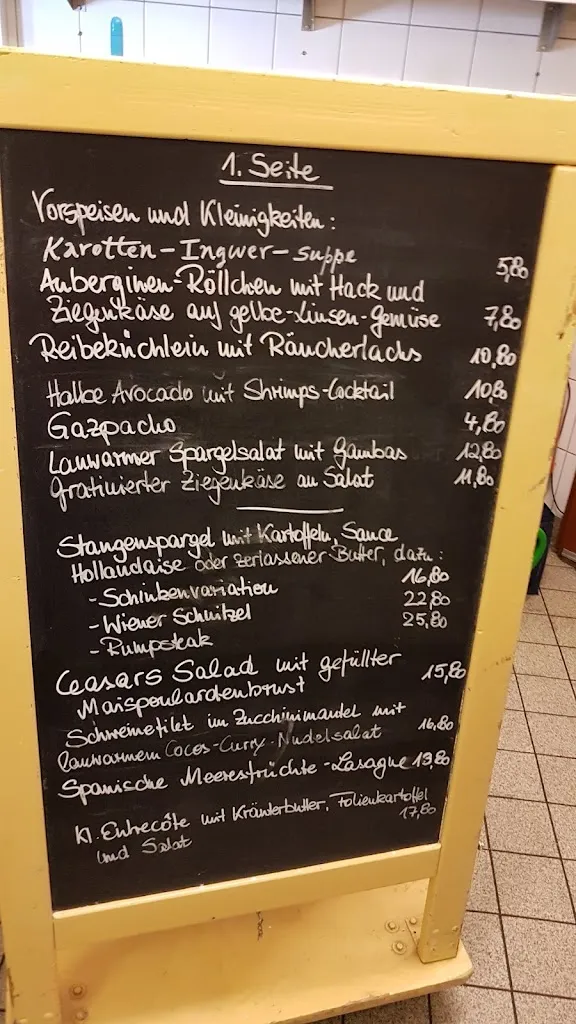 1. Seite
Vorspeisen und Kleinigkeiten:
Karotten-Ingwer-suppe 5,80
Auberginen-Röllchen mit Hack und
Ziegenkäse auf gelbe-Linsen-Gemüse 7,80
Reibeküchlein mit Räucherlachs 10,80
Halbe Avocado mit Shrimps-Cocktail 10,80
Gazpacho 4,80
Lauwarmer Spargelsalat mit Gambas 12,80
gratinierter Ziegenkäse an Salat 11,80
Stangenspargel mit Kartoffeln, Sauce
Hollandaise oder zerlassener Butter, dazu:
-Schinkenvariation 16,80
-Wiener Schnitzel 22,80
-Rumpsteak 25,80
Ceasars Salad mit gefüllter 15,80
Maispoulardenbrust
Schweinefilet im Zucchinimantel mit
lauwarmem Cocos-Curry-Nudelsalat 16,80
Spanische Meeresfrüchte-Lasagne 13,80
Kl. Entrecôte mit Kräuterbutter, Folienkartoffel
und Salat 17,80